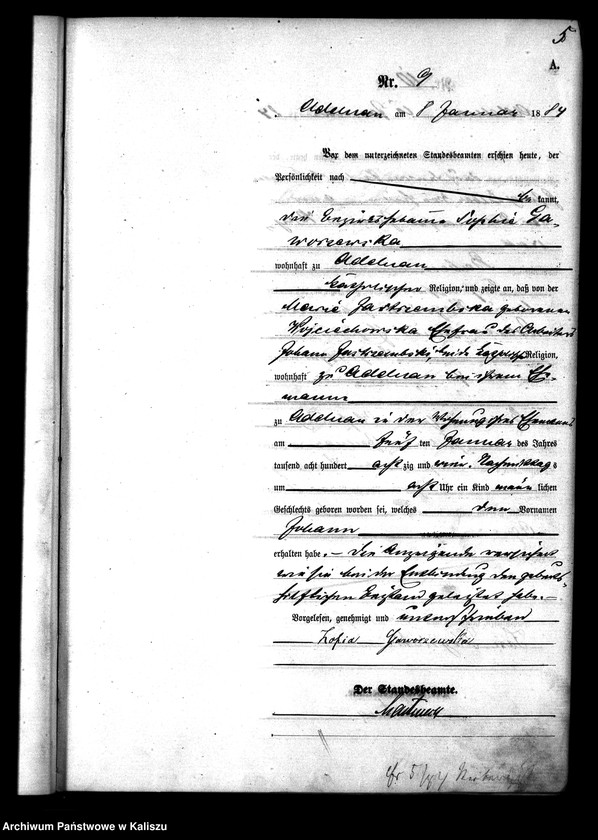 5
A.
Nr. 9
Adelnau am 8 Januar 1884
Vor dem unterzeichneten Standesbeamten erschien heute, der
Persönlichkeit nach
be kannt,
die Bezirkshebamme Sophie Ga-
worzewska
wohnhaft zu Adelnau
katholischer Religion, und zeigte an, daß von der
Marie Jastrzembska geborenen
Wojciechowska Ehefrau des Arbeiters
Johann Jastrzembski, beide katholischer Religion,
wohnhaft zu Adelnau bei ihrem Ehe-
manne
zu Adelnau in der Wohnung ihres Ehemanns
am fünf ten Januar des Jahres
tausend acht hundert acht zig und vier Nachmittags
um acht Uhr ein Kind männ lichen
Geschlechts geboren worden sei, welches den Vornamen
Johann
erhalten habe. – Die Anzeigende versichert
wie sie bei der Entbindung den geburts-
hilflichen Beistand geleistet habe. –
Vorgelesen, genehmigt und unterschrieben
Zofia Gaworzewska
Der Standesbeamte.
Archiwum Państwowe w Kaliszu